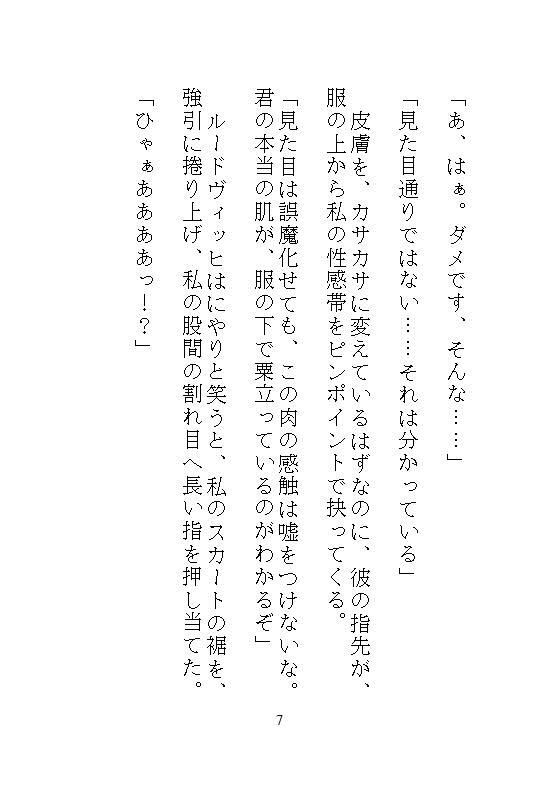 「あ、はぁ。ダメです、そんな……」
「見た目通りではない……それは分かっている」
皮膚を、カサカサに変えているはずなのに、彼の指先が、
服の上から私の性感帯をピンポイントで抉ってくる。
「見た目は誤魔化せても、この肉の感触は嘘をつけないな。
君の本当の肌が、服の下で粟立っているのがわかるぞ」
ルードヴィッヒはにやりと笑うと、私のスカートの裾を、
強引に捲り上げ、私の股間の割れ目へ長い指を押し当てた。
「ひゃぁああああっ！？」
7